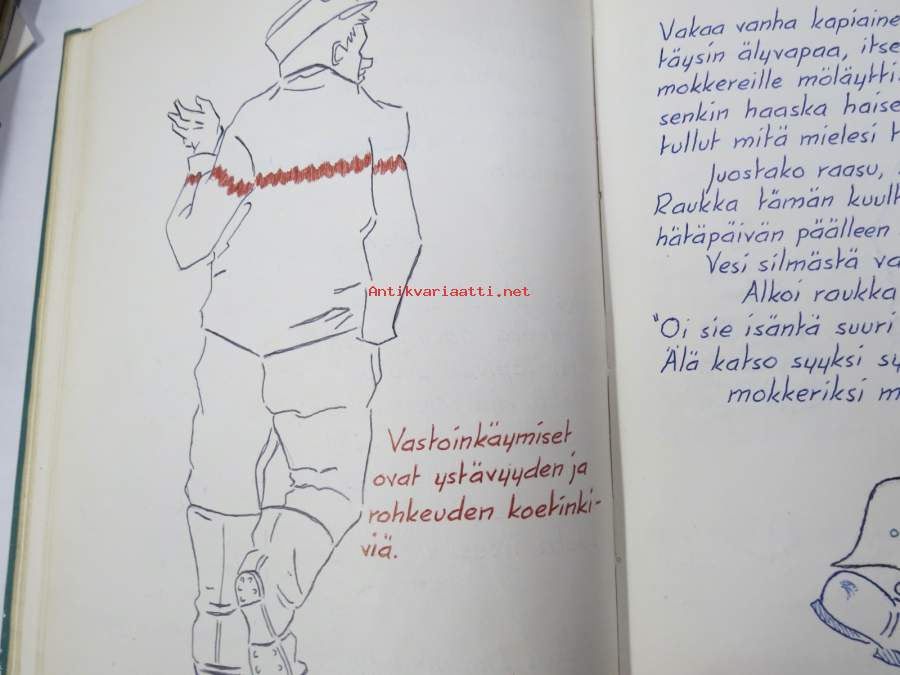 Vastoinkäymiset
ovat ystävyyden ja
rohkeuden koetinki-
viä.
Vakaa vanha kapiaine
täysin älyvapaa, itse
mokkereille möläytti
senkin haaska haise
tullut mitä mielesi t
Juostako raasu,
Raukka tämän kuult
hätäpäivän päälleen
Vesi silmästä va
Alkoi raukka
"Oi sie isäntä suuri
Älä katso syyksi sy
mokkeriksi m
Antikvariaatti.net